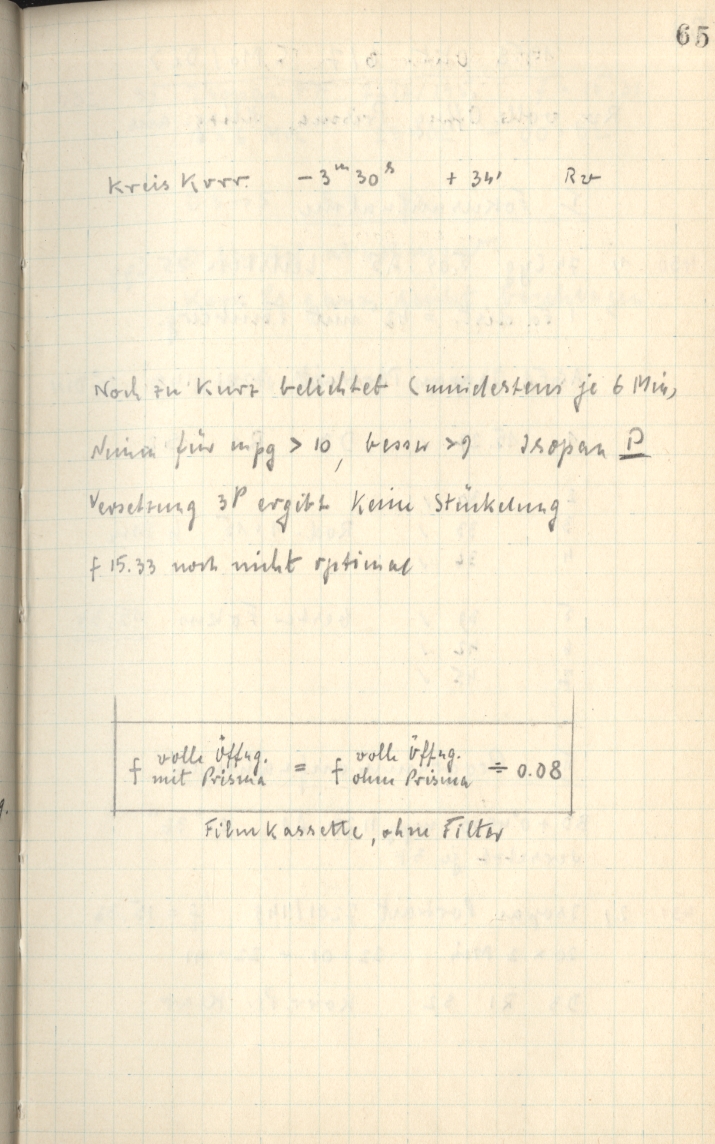 65
Kreis Korr. −3ᵐ30ˢ + 34'
Noch zu kurz belichtet (mindestens je 6 Min)
für mpg > 10, besser >9 Isopan P
Versetzung 3P ergibt keine Stückelung
f 15.33 noch nicht optimal
f volle Öffng. mit Prisma = f volle Öffng. ohne Prisma ÷ 0.08
Filmkassette, ohne Filter